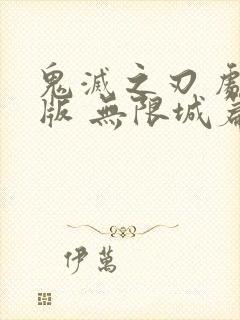 鬼滅之刃
版 無限城
伊萬